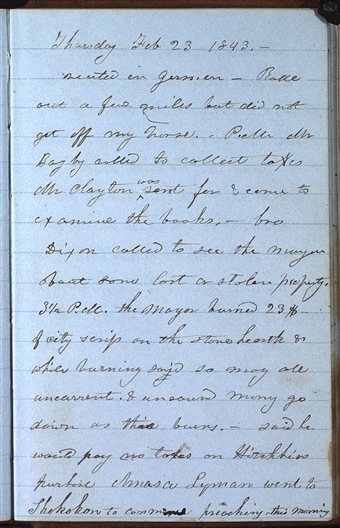 Thursday Feb 23 1843.-
recited in German - Rode
out a few miles but did not
get off my horse. - P.M. Mr
Bagby called to collect taxes
Mr Clayton was sent for & come to
examine the books, - bro
Dixon called to see the mayor
about some lost or stolen property.
3½ P.M. the Mayor burned 23 $
of city scrip on the stone hearth &
while burning said so may all
uncurrent & unsound money go
down as this burns. - said he
would pay no taxes on Hirshkins
purchase Amasa Lyman went to
Shokokon to commence preaching this morning